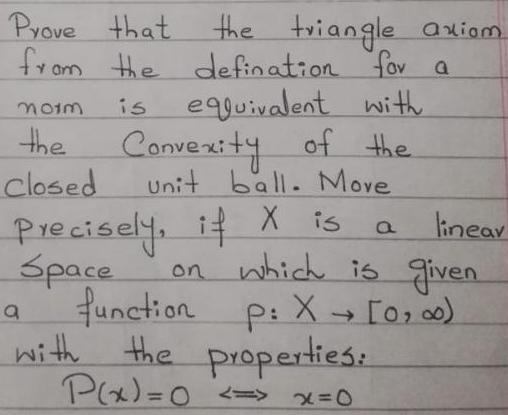 Prove that the triangle axiom
from the defination for a
norm is eqquivalent with
the Convexity of the
Closed unit ball. More
precisely, if X is a linear
Space on which is given
a function p: X → [0, ∞)
with the properties:
P(x) = 0 <=> x=0